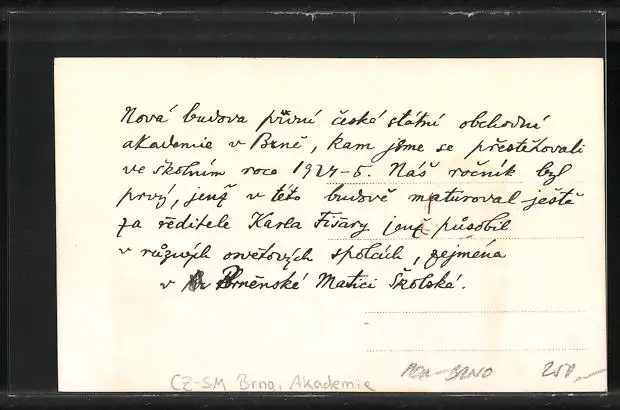 Nová budova první česká státní obchodní
akademie v Brně, kam jsme se přestěhovali
ve školním roce 1924-5. Náš ročník byl
prvý, jenž v této budově maturoval ještě
za ředitele Karla Fišary jenž působil
v různých osvětových spolcích, zejména
v Brněnské Matici Školské.
CZ-SM Brno, Akademie
BRNO 250,-